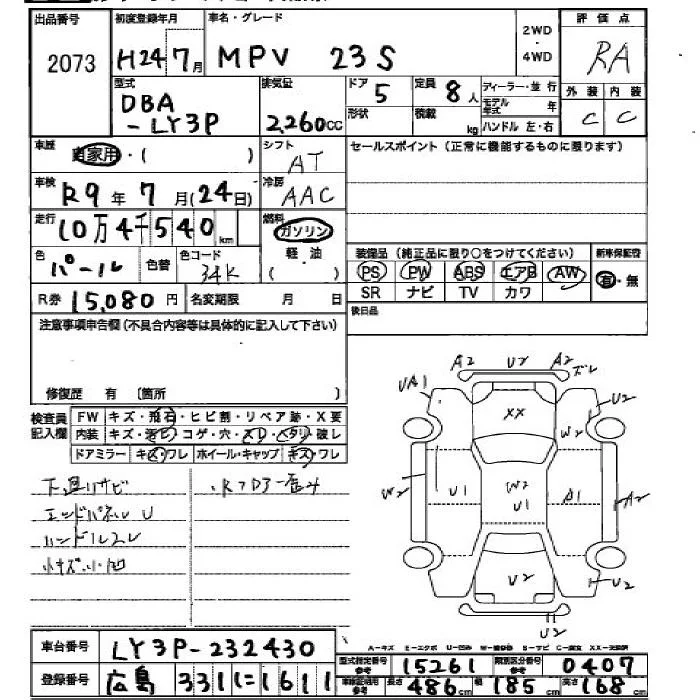 出品番号 初度登録年月 車名・グレード 2WD ・ 4WD 評価点
2073 H24 7月 MPV 23S RA
型式 排気量 ドア 定員 ディーラー・並行 外装 内装
DBA 5 8人 モデル年式 年
-LY3P 2,260cc 形状 積載 kg ハンドル 左・右 C C
車歴 自家用・( ) シフト AT セールスポイント(正常に機能するものに限ります)
車検 R9年7月(24日) 冷房 AAC
走行 10万4千540km 燃料 ガソリン
軽・油
( )
色 パール 色替 色コード 34K
装備品(純正品に限り○をつけてください) 新車保証書
PS PW ABS エアB AW 有・無
SR ナビ TV カワ
R券 15,080円 名変期限 月 日 後日品
注意事項申告欄(不具合内容等は具体的に記入して下さい)
修復歴 有 〔箇所 〕
検査員記入欄 FW キズ・飛石・ヒビ割・リペア跡・X要
内装 キズ・汚ビ・コゲ・穴・スレ・ヘタリ・破レ
ドアミラー キズ・ワレ ホイール・キャップ キズ・ワレ
下廻リサビ
エンドパネルU
ハンドルスレ
小キズ・小凹
A2 U2 A2 ズレ
UA1 U2
XX
W2
W2 U1 W2 U1 A1 A2
U2 U2
U2
A-キズ E-エクボ U-凹み W-補修跡 S-サビ C-腐食 XX-交換済
車台番号 LY3P-232430
型式指定番号 参考 15261 類別区分番号 参考 0407
登録番号 広島 331に1611
車庫証明用 参考 長さ 486cm 幅 185cm 高さ 168cm